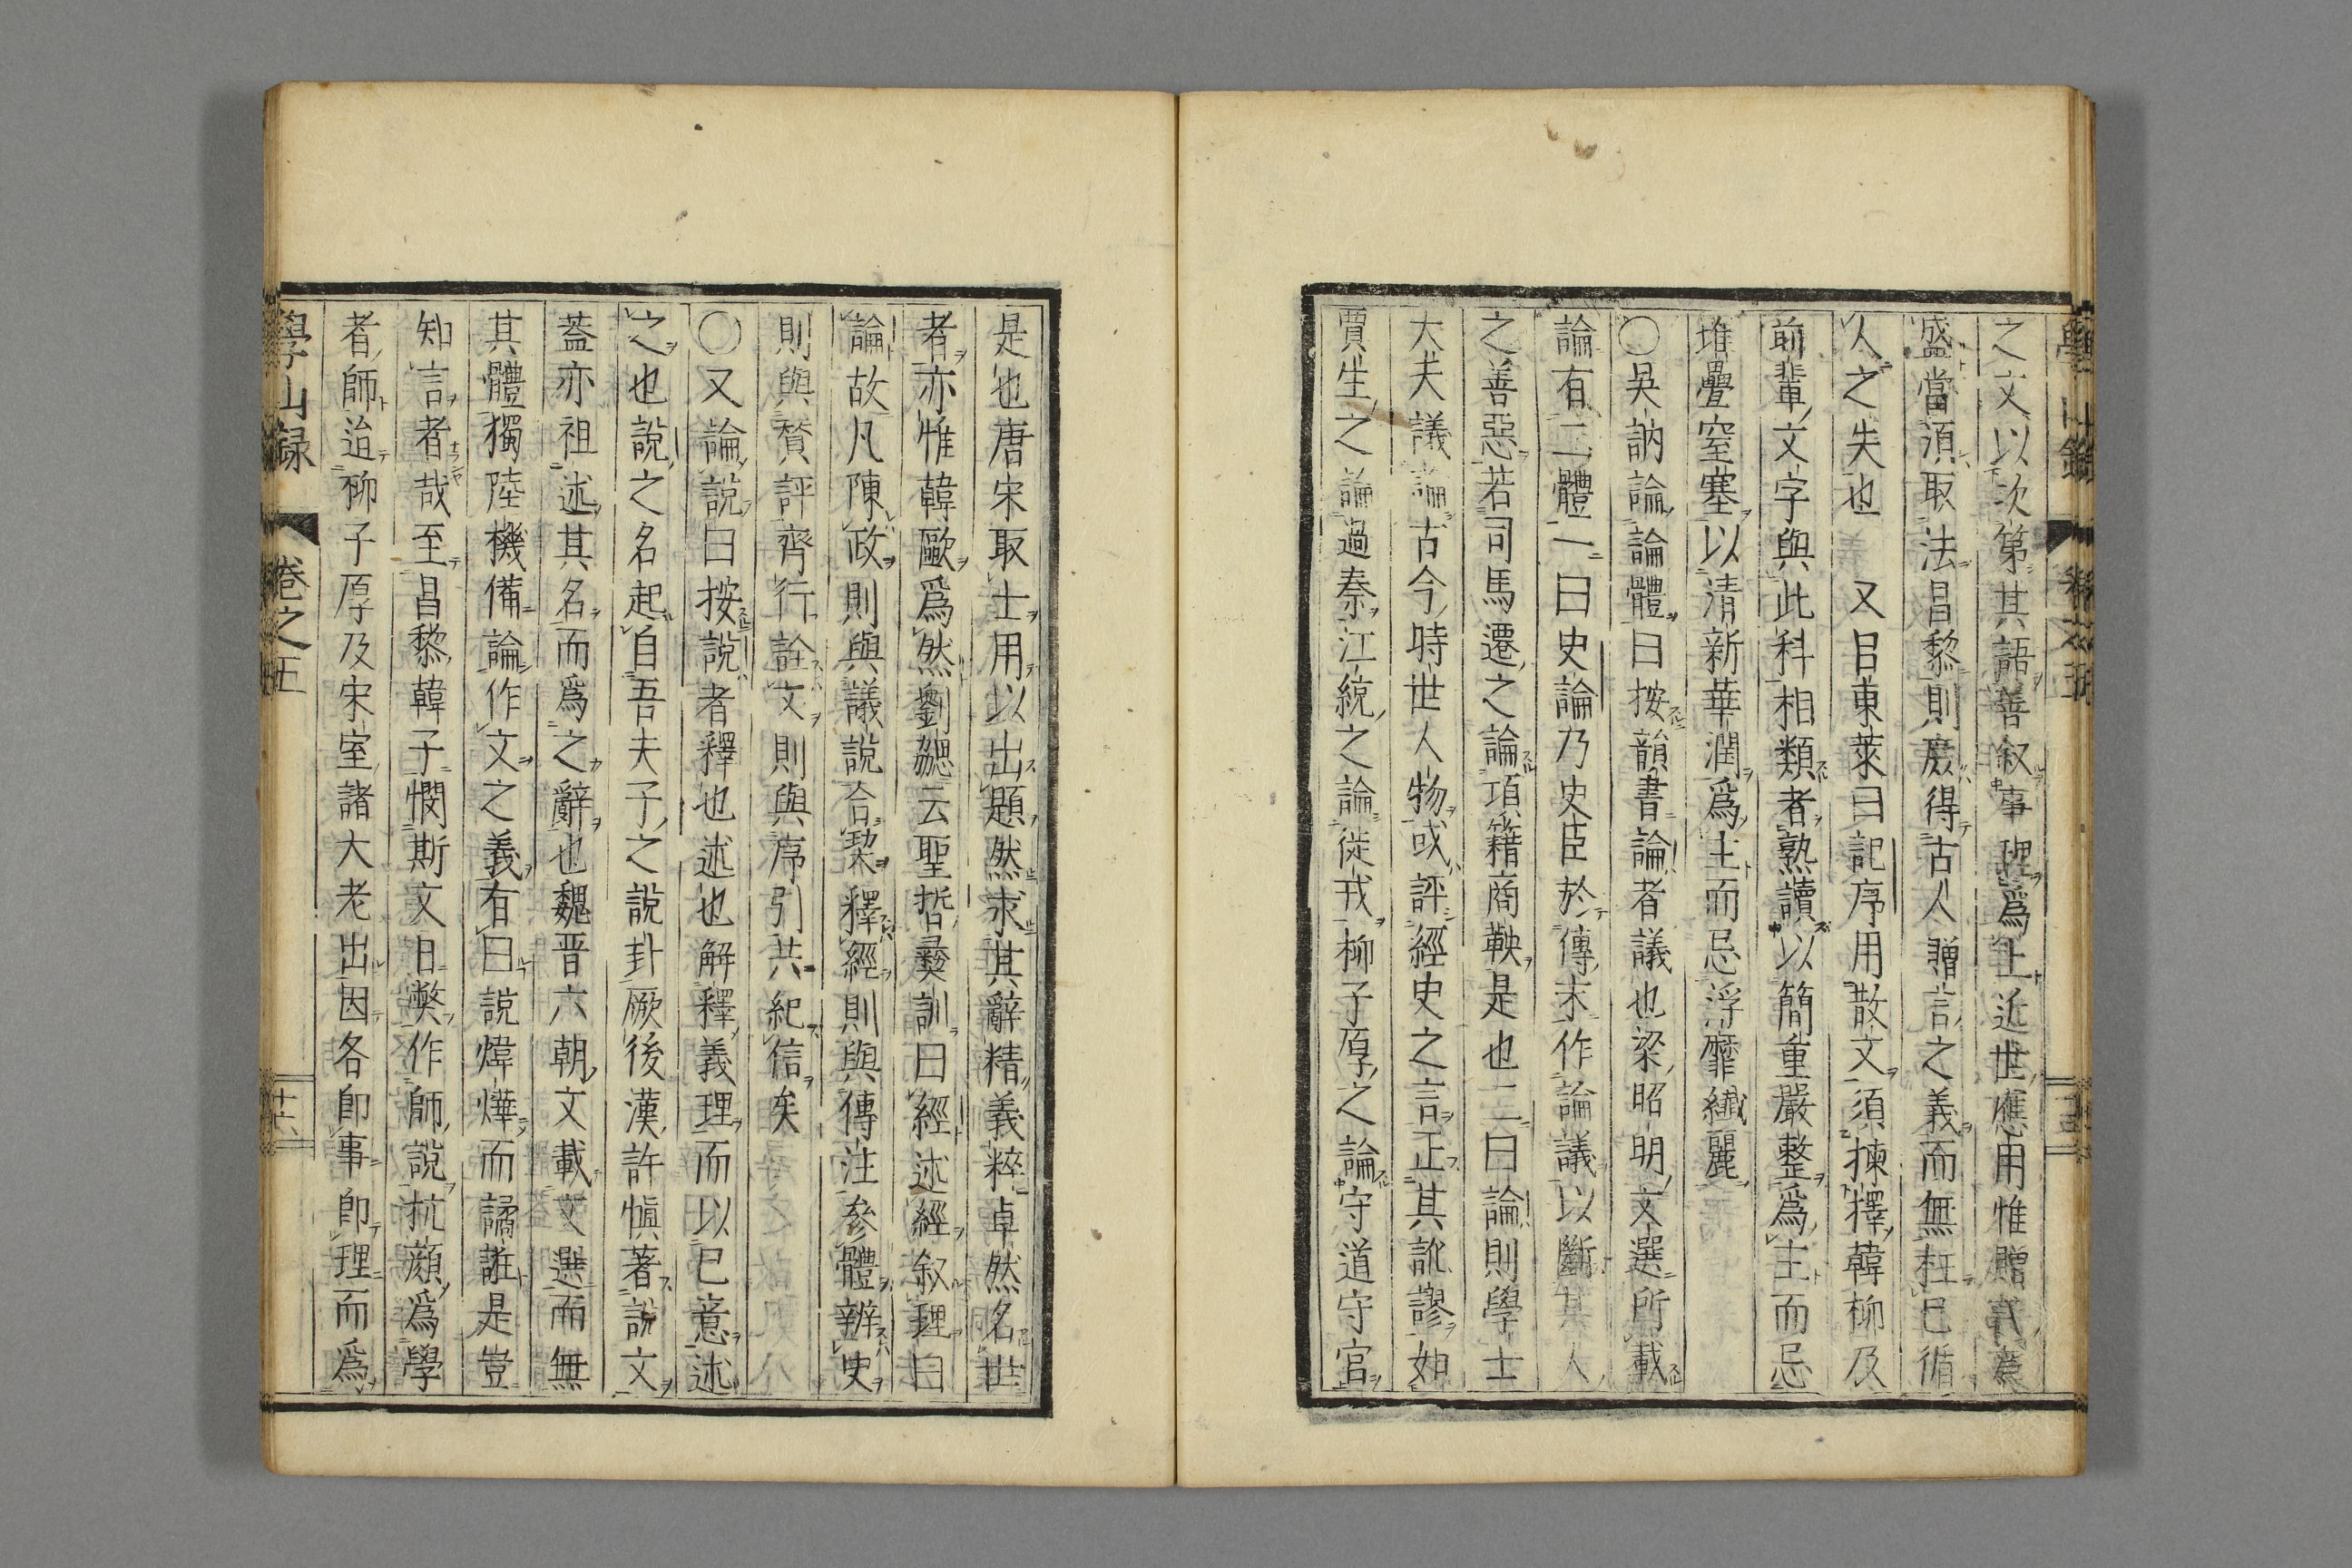 之文以次第其語善叙事理爲上近世應用惟贈
盛當須取法昌黎則庶得古人贈言之義而無枉已循
人之失也　又呂東萊曰記序用散文須揀擇韓柳及
前輩文字與此科相類者熟讀以簡重嚴整爲主而忌
堆疊窒塞以清新華潤爲主而忌浮靡纖麗
○吳訥論論體曰按韻書論者議也梁昭明文選所載
論有二體一曰史論乃史臣於傳末作論議以斷其人
之善惡若司馬遷之論項籍商鞅是也二曰論則學士
大夫議論古今時世人物或評經史之言正其訛謬如
賈生之論過秦江統之論徙戎柳子厚之論守道守官
是也唐宋取士用以出題然求其辭精義粹卓然名世
者亦惟韓歐爲然劉勰云聖哲彝訓曰經述經叙理曰
論故凡陳政則與議說合契釋經則與傳注參體辨史
則與贊評齊行詮文則與序引共紀信矣
○又論說曰按說者釋也述也解釋義理而以已意述
之也說之名起自吾夫子之說卦厥後漢許愼著說文
蓋亦祖述其名而爲之辭也魏晋六朝文載文選而無
其體獨陸機備論作文之義有曰說煒燁而譎誑是豈
知言者哉至昌黎韓子憫斯文日弊作師說抗顔爲學
者師迨柳子厚及宋室諸大老出因各卽事卽理而爲
學山録　卷之五　十六